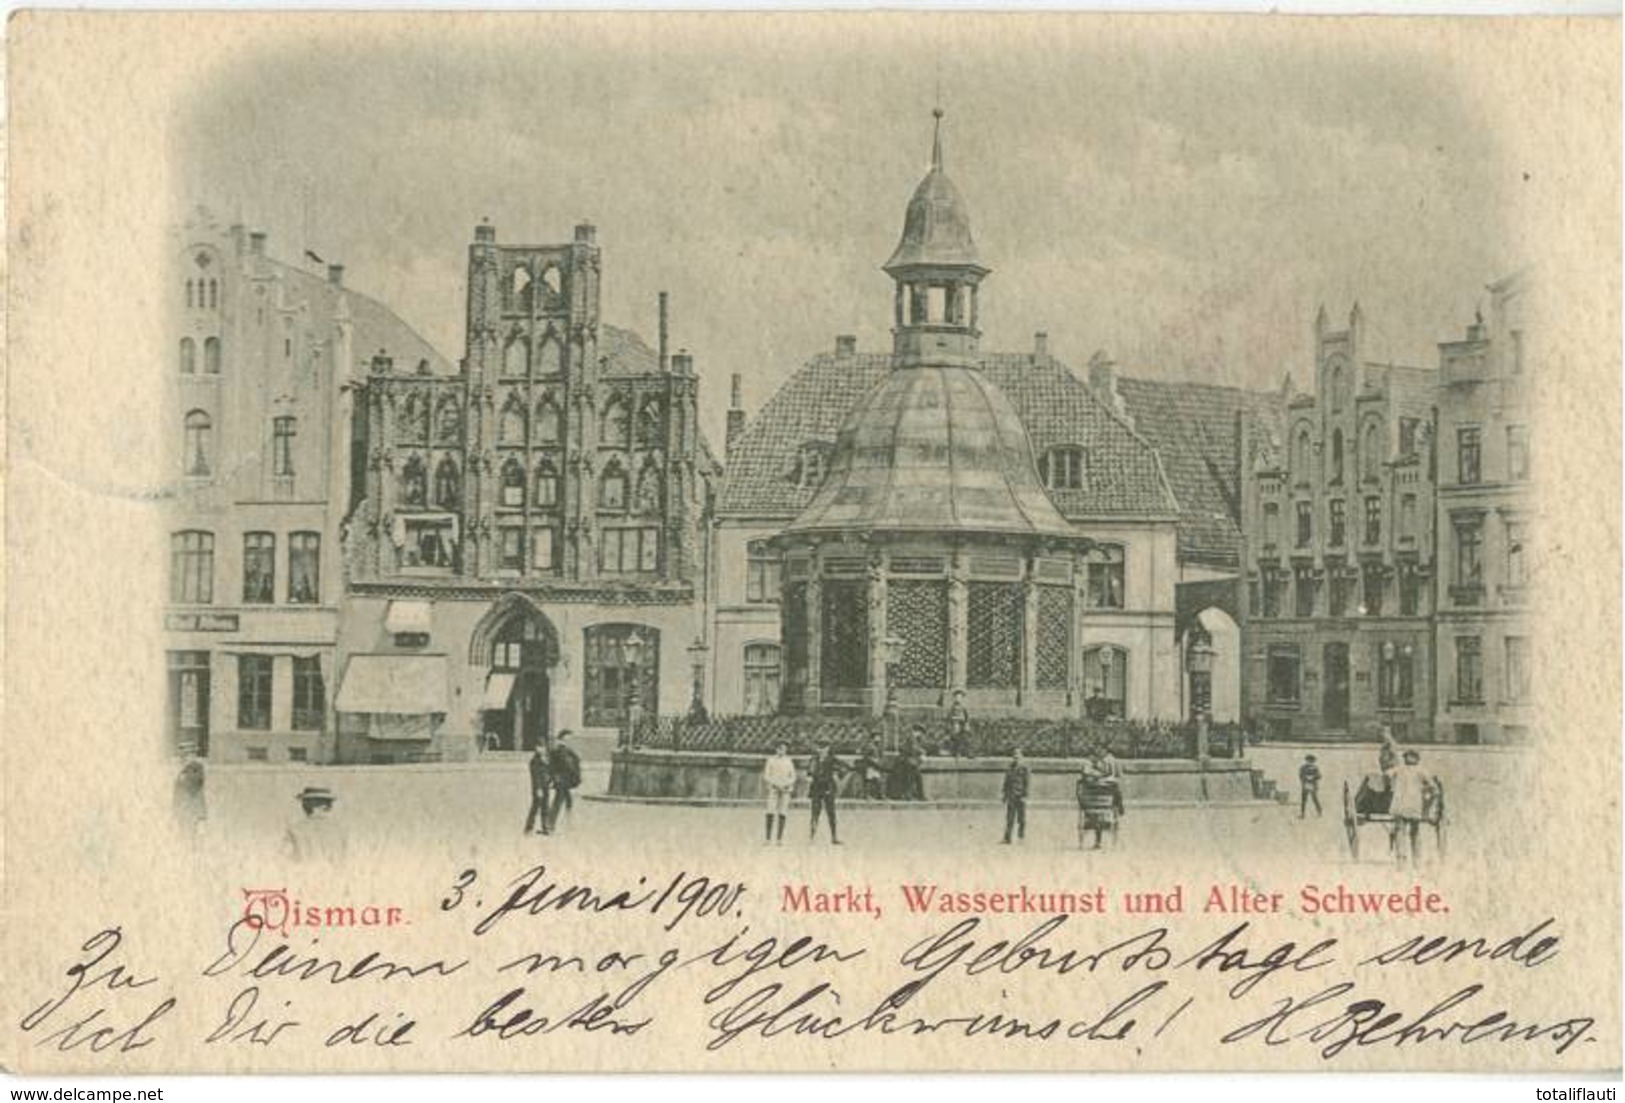 Wismar. 3. Juni 1900. Markt, Wasserkunst und Alter Schwede.
Zu Deinem morgigen Geburtstage sende
ich Dir die besten Glückwünsche! H Behrens.
www.delcampe.net
totaliflauti